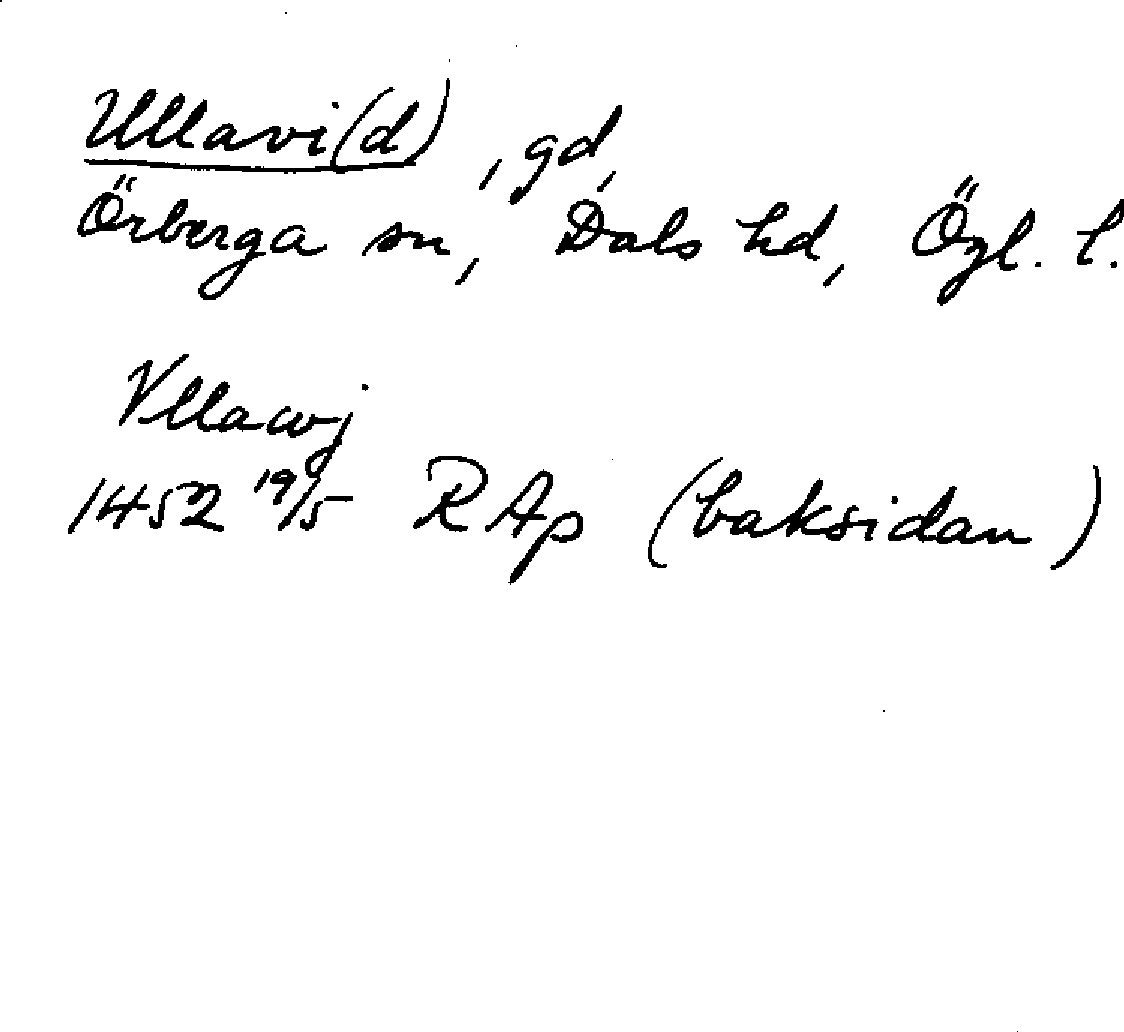 Ullavi(d), gd,
Örberga sn, Dals hd, Ögl. l.
Vllawj
1452 19/5 RAp (baksidan)